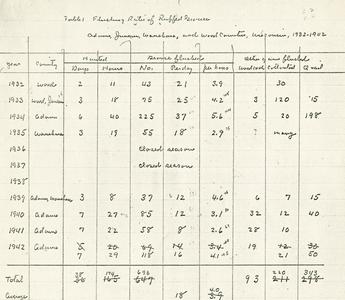 Table 1 Flushing Rates of Ruffed Grouse
Adams, Juneau, Waushara, and Wood Counties, Wisconsin, 1932-1942
Hunted Grouse flushed Other game flushed
Year County Days Hours No. Per day per hour Woodcock Cottontail Quail
1932 Wood 2 11 43 21 3.9 30
1933 Wood, 3 18 75 25 4.2 3 120 15
1934 Adams 6 40 225 37 5.6 5 20 198
1935 Waushara 3 19 55 18 2.9 ? many
1936 Closed season
1937 Closed season
1938
1939 Adams, Waushara 3 8 37 12 4.6 6 7 15
1940 Adams 7 27 85 12 3.1 32 12 40
1941 Adams 7 22 58 8 2.6 28 10
1942 Adams 5 20 69 14 3.4 19 12 30
7 29 118 16 4.1 21 50
38 174 696 220 343
Total 165 647 93 211 298
4.0
Average 18 3.9